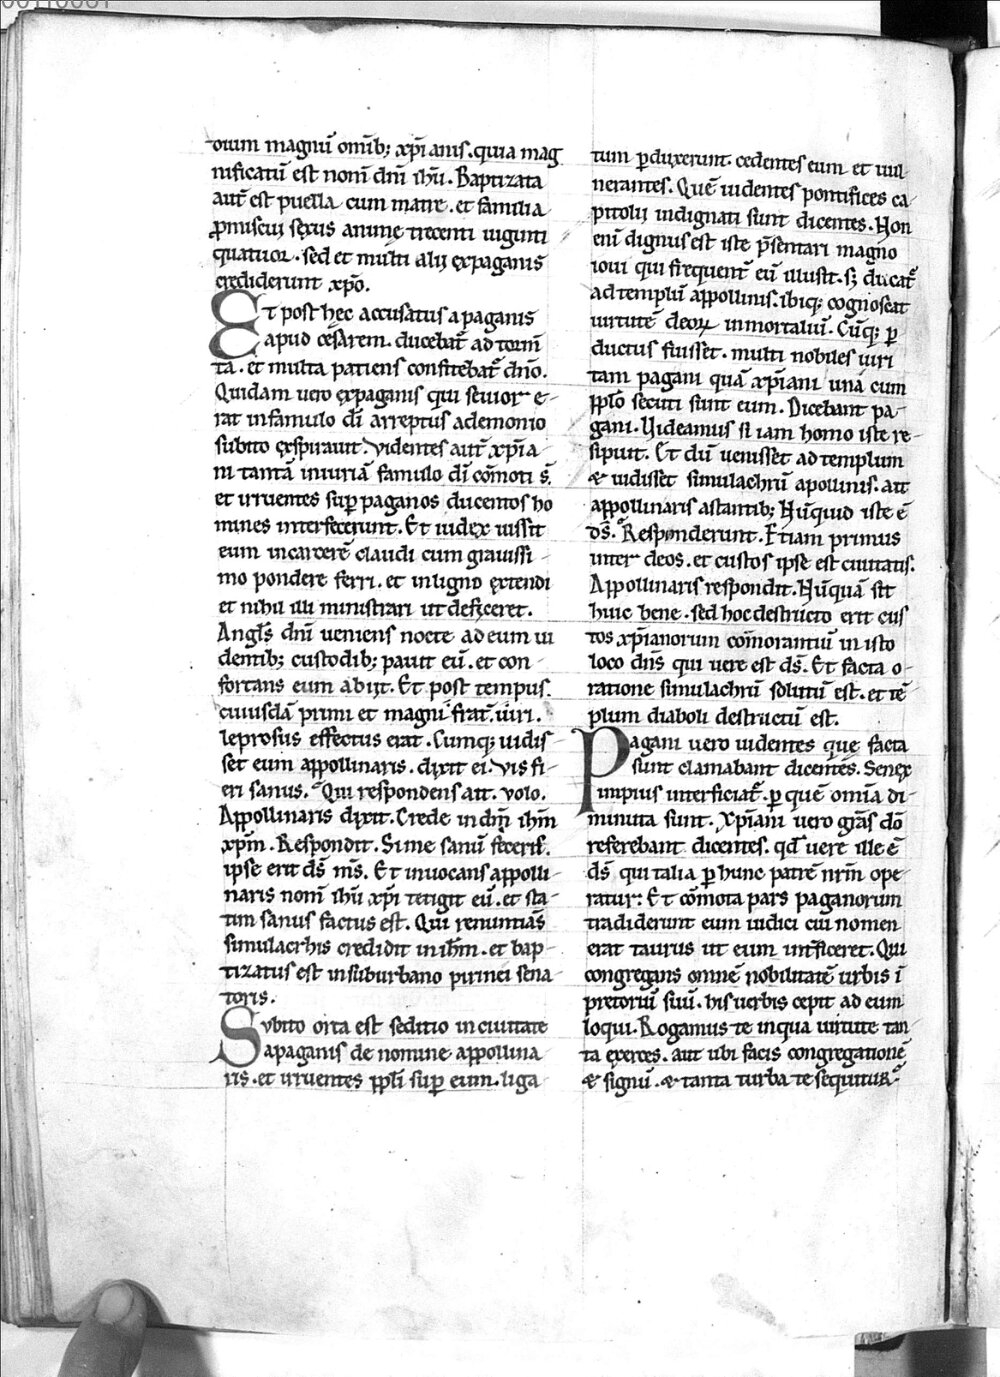 dium magnū om̄ib; xp̄ianis. quia mag
nificatū est nom̄ dn̄i ih̄u. Baptizata
aut̄ est puella cum matre. et familia
ꝓmiscui sexus animę trecenti uiginti
quatuor. sed et multi alij ex paganis
crediderunt xp̄o.
Et post hec accusatus a paganis
apud cesarem. ducebat᷑ ad torm̄
ta. et multa patiens confitebat᷑ dn̄o.
Quidam uero ex paganis qui seuior e-
rat in famulo dī arreptus a demonio
subito expirauit. Videntes aut̄ xp̄ia-
ni tantā iniuriā famulo dī cōmoti s̄.
et irruentes sup̄ paganos ducentos ho
mines interfecerunt. Et iudex iussit
eum in carcerē claudi cum grauissi-
mo pondere ferri. et in ligno extendi
et nihil illi ministrari ut deficeret.
Angl̄s dn̄i ueniens nocte ad eum ui
dentib; custodib; pauit eū. et con-
fortans eum abijt. Et post tempus.
cuiusdā primi et magni frat᷑. uiri.
leprosus effectus erat. Cumq; uidis-
set eum appollinaris. dixit ei. Vis fi-
eri sanus. Qui respondens ait. volo.
Appollinaris dixit. Crede in dn̄m ih̄m
xp̄m. Respondit. Si me sanū feceris.
ipse erit ds̄ ms̄. Et inuocans appolli-
naris nom̄ ih̄u xp̄i tetigit eū. et sta-
tim sanus factus est. Qui renuntiās
simulacrhis credidit in ih̄m. et bap-
tizatus est in suburbano pirinei sena-
toris.
Subito orta est seditio in ciuitate
a paganis de nomine appollina
ris. et irruentes pp̄li sup̄ eum. liga
tum ꝑduxerunt. cedentes eum et uul
nerantes. Quē uidentes pontifices ca-
pitolij indignati sunt dicentes. Non
enī dignus est iste p̄sentari magno
ioui qui frequent̄ eū illusit. s; ducat᷑
ad templū appollinis. ibiq; cognoscat
uirtutē deoꝝ inmortaliū. Cūq; ꝑ
ductus fuisset. multi nobiles uiri
tam pagani quā xp̄iani una cum
pp̄lo secuti sunt eum. Dicebant pa-
gani. Uideamus si iam homo iste re-
sipiuit. Et dū uenisset ad templum
& uidisset simulachrū apollinis. ait
appollinaris astantib; Nūquid iste ē
ds̄. Responderunt. Etiam primus
inter deos. et custos ipse est ciuitatis.
Appollinaris respondit. Nūquā sit
huic bene. sed hoc destructo erit cus
tos xp̄ianorum cōmorantiū in isto
loco dn̄s qui uere est ds̄. Et facta o-
ratione simulachrū solutū est. et tē-
plum diaboli destructū est.
Pagani uero uidentes que facta
sunt clamabant dicentes. Senex
impius interficiat᷑. ꝑ quē omīa di-
minuta sunt. Xp̄iani uero grās dō
referebant dicentes. qd̄ uere ille ē
ds̄ qui talia ꝑ hunc patrē nr̄m ope-
ratur: Et cōmota pars paganorum
tradiderunt eum iudici cui nomen
erat taurus ut eum intficeret. Qui
congregans omnē nobilitatē urbis ī
pretoriū suū. his uerbis cepit ad eum
loqui. Rogamus te in qua uirtute tan-
ta exerces. aut ubi facis congregationē
& signū. & tanta turba te sequitur᷑.